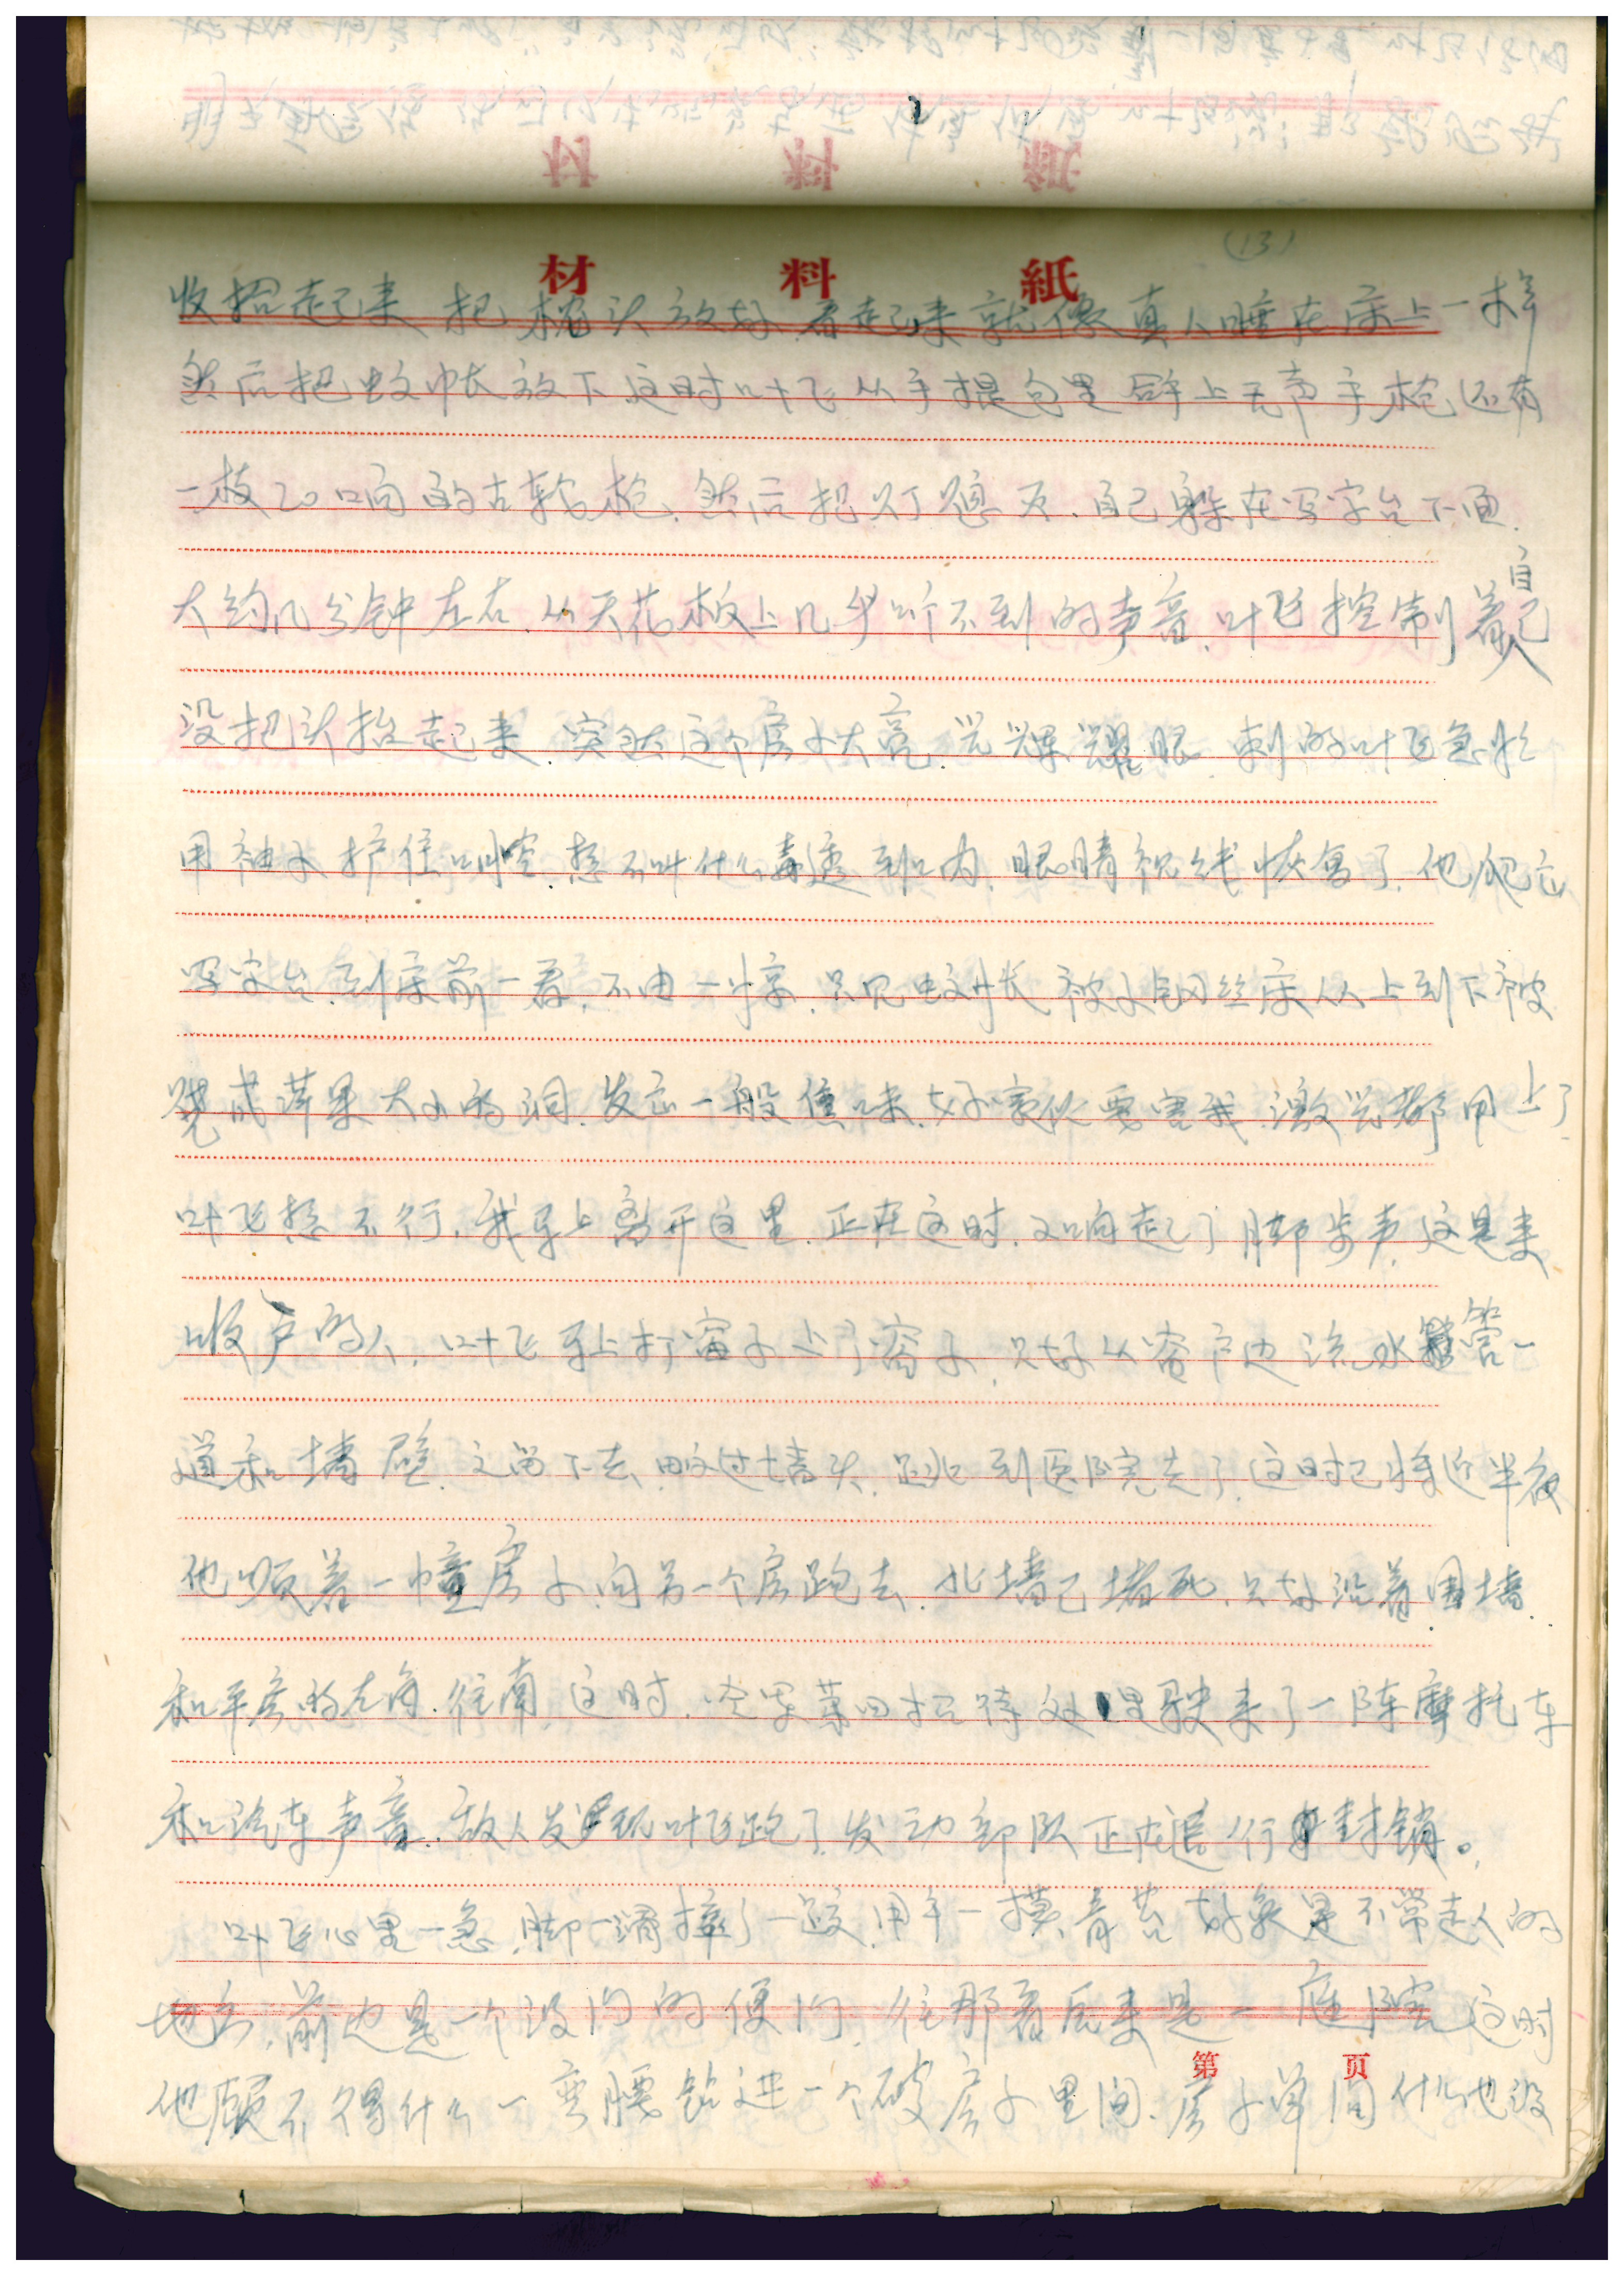 (13)
材料紙
收拾起来 把枕头放好 看起来就像真人睡在床上一样
然后把蚊帐放下 这时叶飞从手提包里拿上无声手枪还有
一枝20口响的古轮枪、然后把灯熄灭、自己躲在写字台下面.
大约几分钟左右.从天花板上几乎听不到的声音.叶飞控制着自己
没把头抬起来.突然这个房子大亮.光辉耀眼.刺的叶飞急忙
用袖子护住口腔.想不叫什么毒透到口内.眼睛视线恢复了.他爬立
写字台.到床前一看.不由一惊.只见蚊帐被小钢丝床从上到下被
烧成苹果大小的洞.发出一般焦味.好家伙要害我.激光都用上了.
叶飞想不行.我马上离开这里.正在这时.又响起了脚步声.这是来
收尸的人.叶飞马上打窗子上了窗子.只好从窗户边流水管一
道和墙壁.之留下去.越过墙头.跳到医院去了.这时已将近半夜
他顺着一幢房子向另一个房跑去.北墙已堵死.只好沿着围墙.
和平房的左角.往南.这时.空军第四招待处里驶来了一阵摩托车
和汽车声音.敌人发现叶飞跑了.发动部队正在进行封销。
叶飞心里一急.脚一滑摔了一跤.用手一摸.青苔 好象是不常走人的
地方.前边是一个没门的便门.往那看后来是一庭院 这时
他顾不得什么一弯腰钻进一个破房子里间.房子单间什么也没
第 页